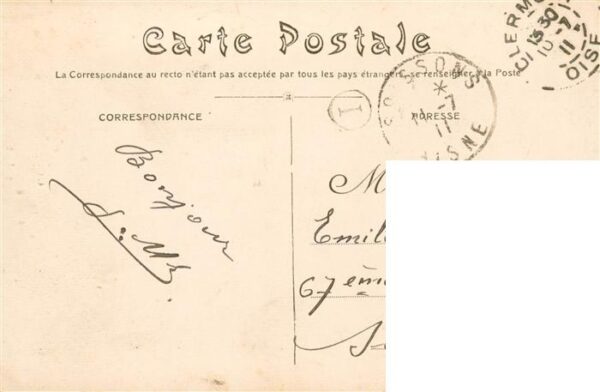 Carte Postale
La Correspondance au recto n'étant pas acceptée par tous les pays étrangers, se renseigner à la Poste
CORRESPONDANCE
ADRESSE
I
SOISSONS
* 
11 -7
11
AISNE
CLERMO
13 30
10 -7
11
OISE
Bonjour
M
Emil
67ème